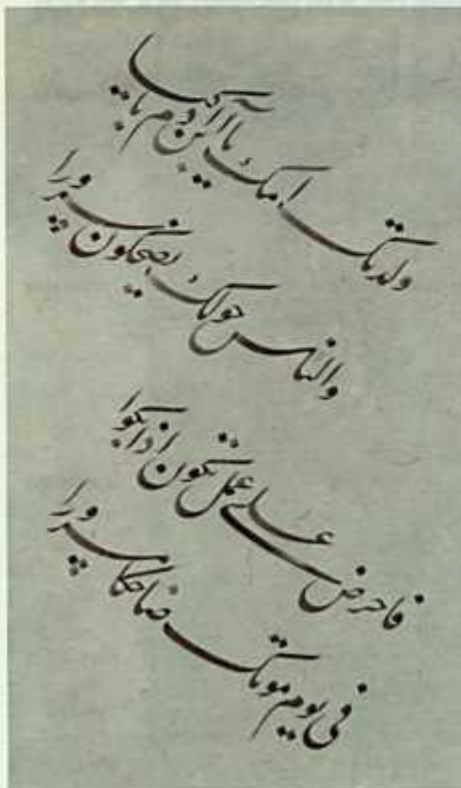 ولدتك امك يا ابن آدم باكيا
والناس حولك يضحكون سرورا
فاحرض على عمل تكون اذا بكوا
فى يوم موتك ضاحكا مسرورا